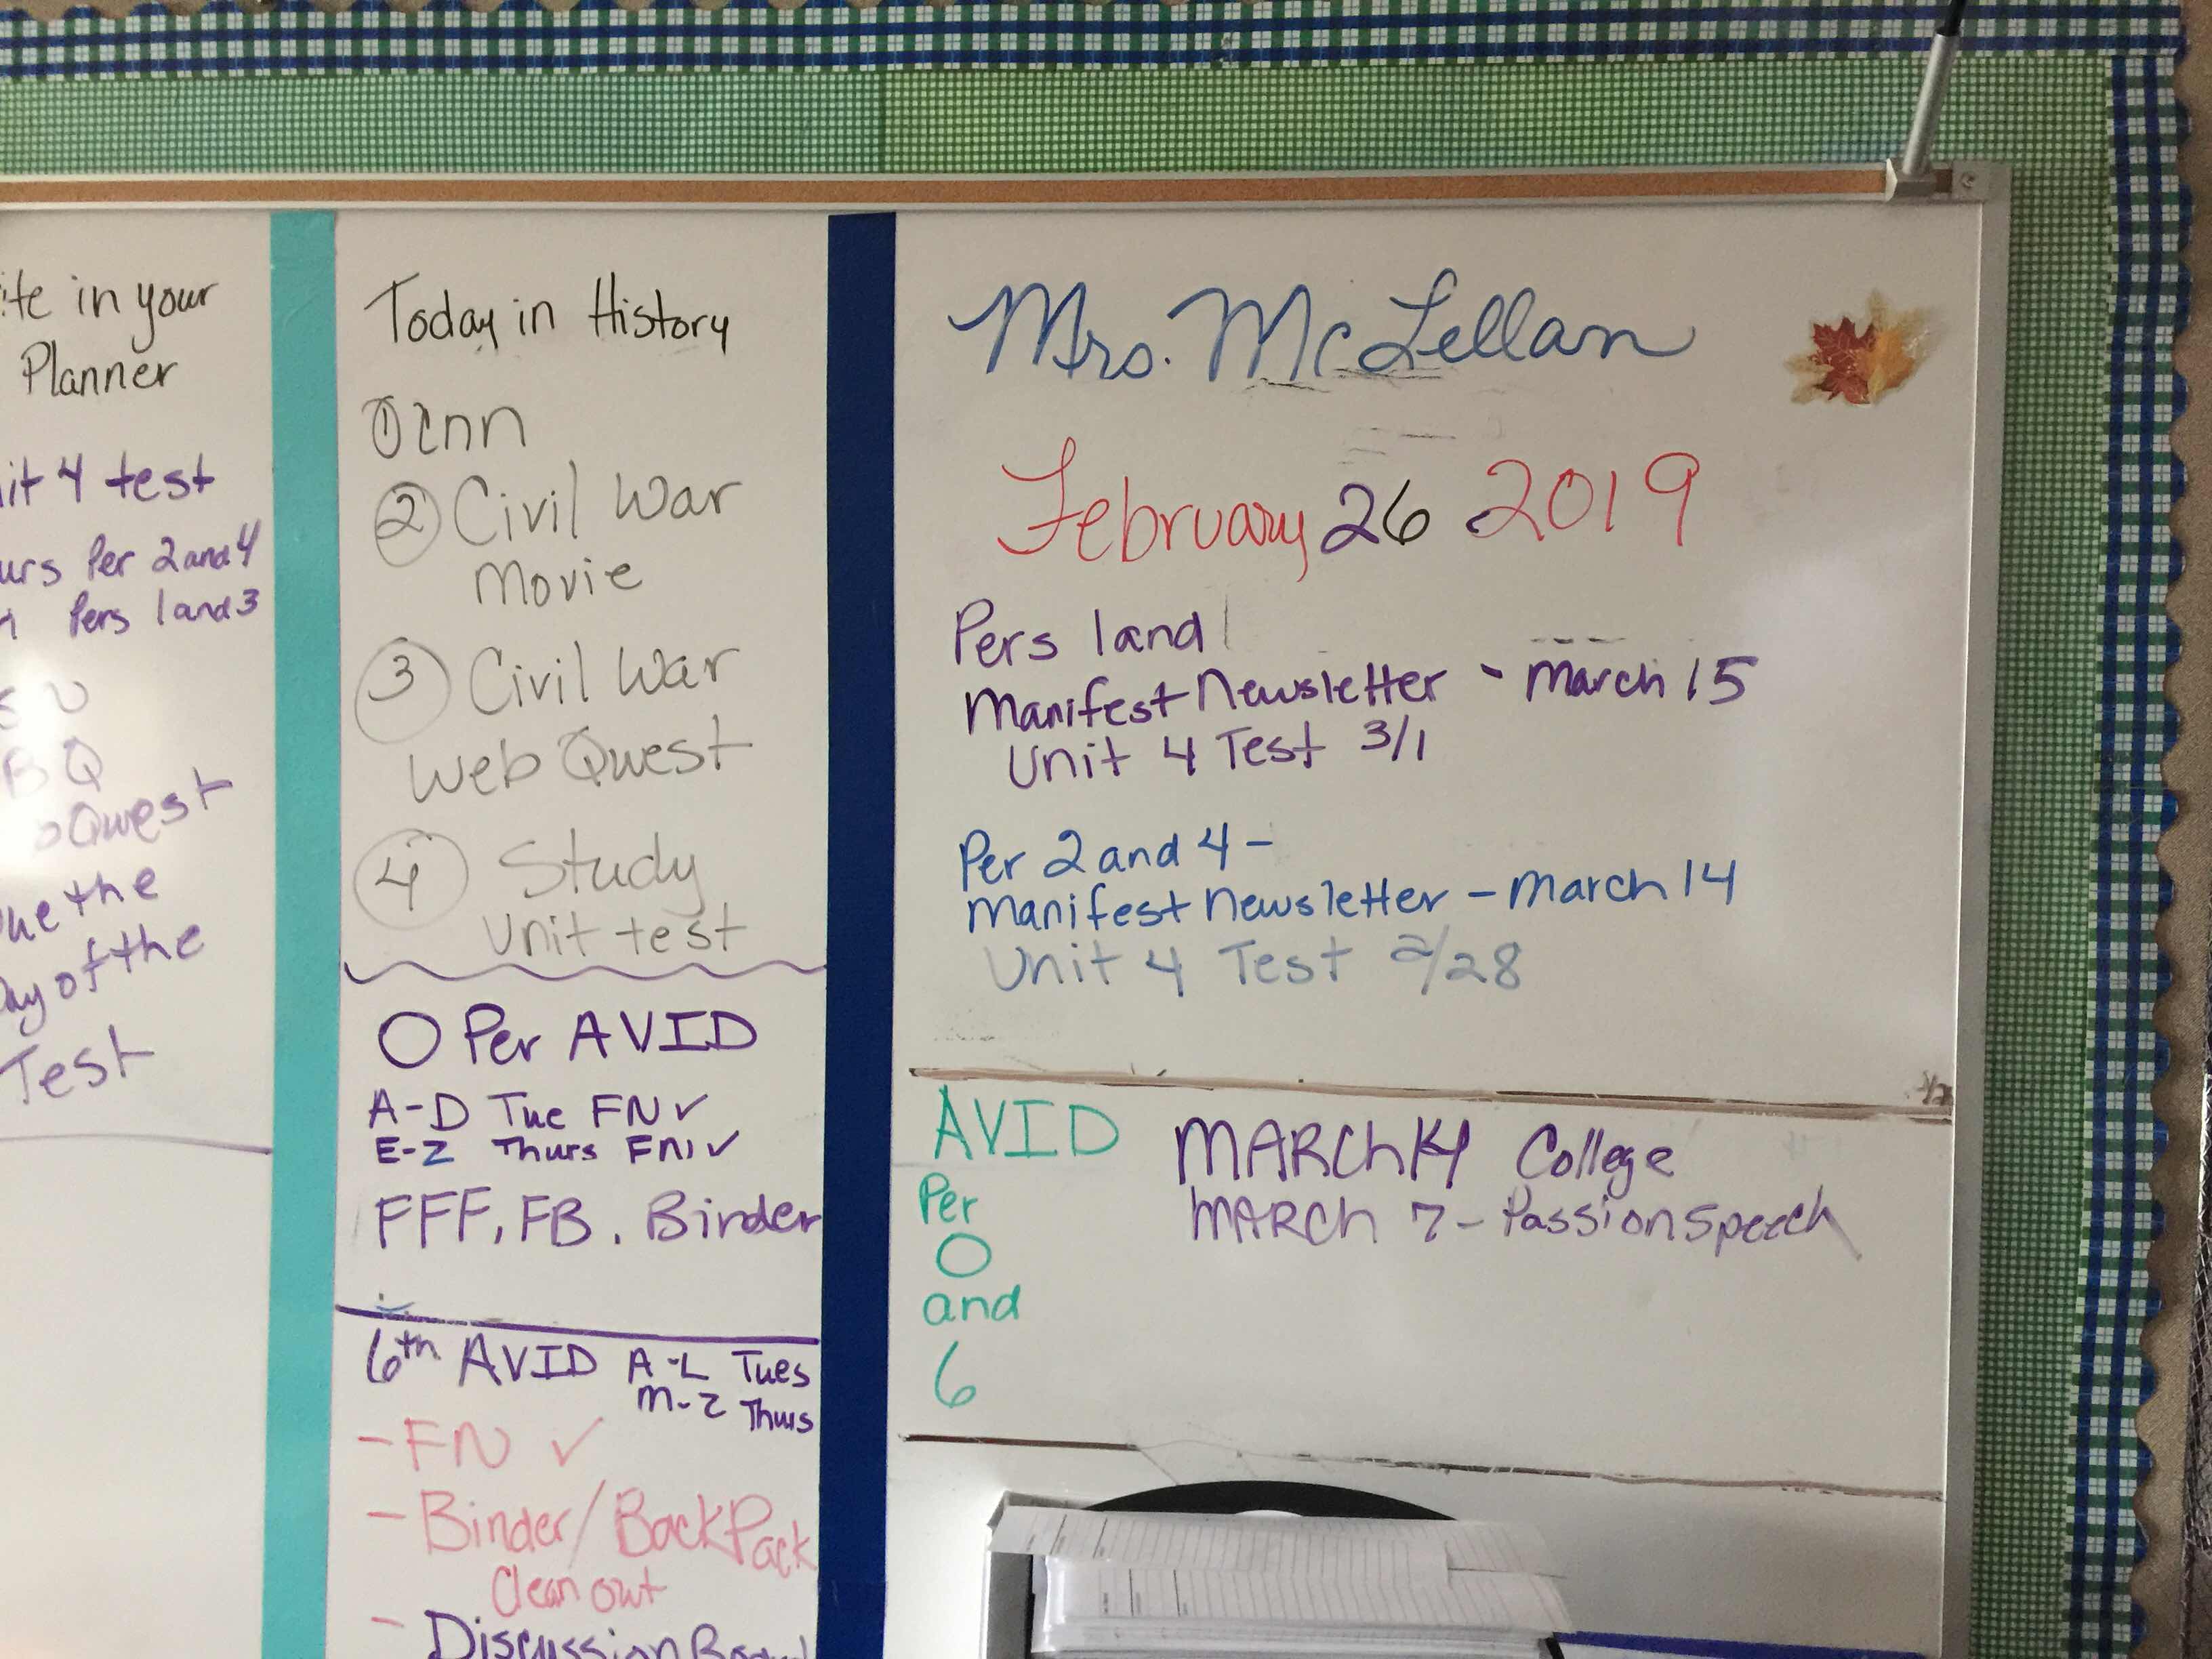 in your
Planner
4 test
Per 2 and 4
Pers 1 and 3
Quest
the
of the
Test
Today in History
① cnn
② Civil War
Movie
③ Civil War
Web Quest
④ Study
Unit test
O Per AVID
A-D Tue FN ✓
E-Z Thurs FN ✓
FFF, FB. Binder
6th AVID A-L Tues
M-Z Thurs
- FN ✓
- Binder/BackPack
Clean out
- Discussion
Mrs. McLellan
February 26 2019
Pers 1 and
Manifest Newsletter - March 15
Unit 4 Test 3/1
Per 2 and 4 -
Manifest Newsletter - March 14
Unit 4 Test 2/28
AVID
Per
O
and
6
MARCH 14 College
MARCH 7 - Passion Speech